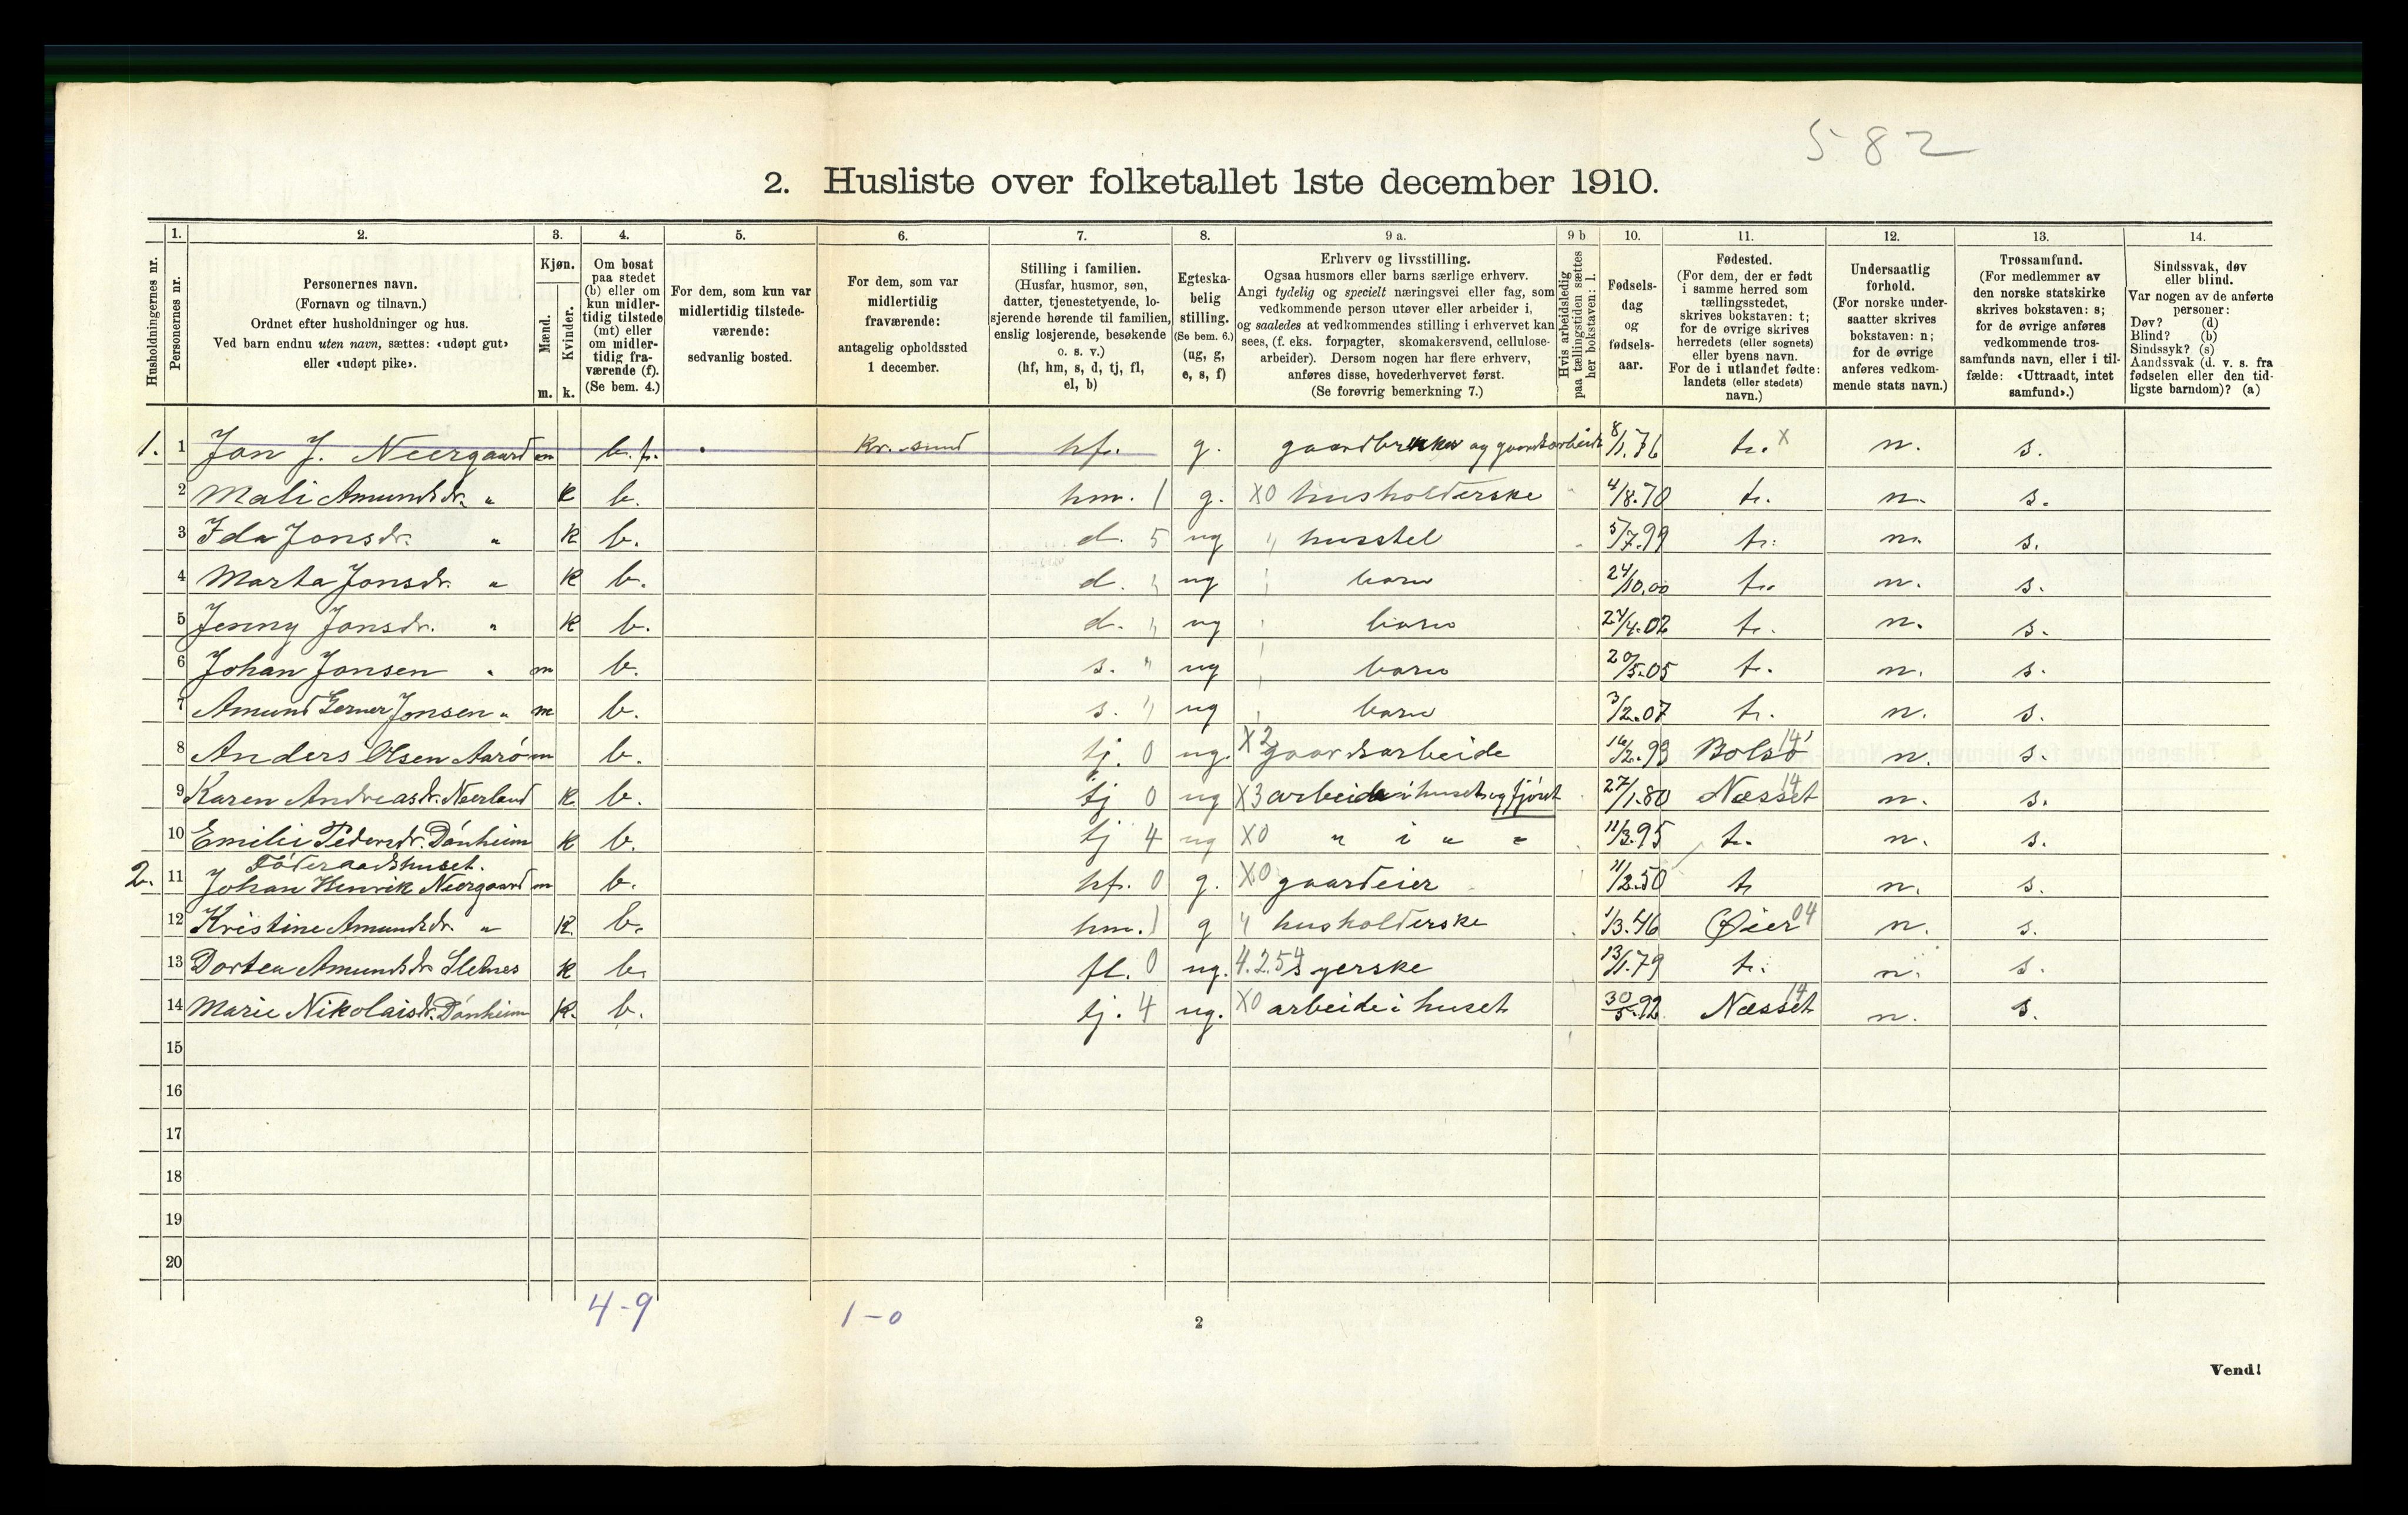 582
2. Husliste over folketallet 1ste december 1910.
1. 2. 3. 4. 5. 6. 7. 8. 9 a. 9 b 10. 11. 12. 13. 14.
Husholdningernes nr.
Personernes nr.
Personernes navn.
(Fornavn og tilnavn.)
Ordnet efter husholdninger og hus.
Ved barn endnu uten navn, sættes: «udøpt gut»
eller «udøpt pike».
Kjøn.
Mænd.
Kvinder.
m. k.
Om bosat
paa stedet
(b) eller om
kun midler-
tidig tilstede
(mt) eller
om midler-
tidig fra-
værende (f).
(Se bem. 4.)
For dem, som kun var
midlertidig tilstede-
værende:
sedvanlig bosted.
For dem, som var
midlertidig
fraværende:
antagelig opholdssted
1 december.
Stilling i familien.
(Husfar, husmor, søn,
datter, tjenestetyende, lo-
sjerende hørende til familien,
enslig losjerende, besøkende
o. s. v.)
(hf, hm, s, d, tj, fl,
el, b)
Egteska-
belig
stilling.
(Se bem. 6.)
(ug, g,
e, s, f)
Erhverv og livsstilling.
Ogsaa husmors eller barns særlige erhverv.
Angi tydelig og specielt næringsvei eller fag, som
vedkommende person utøver eller arbeider i,
og saaledes at vedkommendes stilling i erhvervet kan
sees, (f. eks. forpagter, skomakersvend, cellulose-
arbeider). Dersom nogen har flere erhverv,
anføres disse, hovederhvervet først.
(Se forøvrig bemerkning 7.)
Hvis arbeidsledig
paa tællingstiden sættes
her bokstaven: l.
Fødsels-
dag
og
fødsels-
aar.
Fødested.
(For dem, der er født
i samme herred som
tællingsstedet,
skrives bokstaven: t;
for de øvrige skrives
herredets (eller sognets)
eller byens navn.
For de i utlandet fødte:
landets (eller stedets)
navn.)
Undersaatlig
forhold.
(For norske under-
saatter skrives
bokstaven: n;
for de øvrige
anføres vedkom-
mende stats navn.)
Trossamfund.
(For medlemmer av
den norske statskirke
skrives bokstaven: s;
for de øvrige anføres
vedkommende tros-
samfunds navn, eller i til-
fælde: «Uttraadt, intet
samfund».)
Sindssvak, døv
eller blind.
Var nogen av de anførte
personer:
Døv? (d)
Blind? (b)
Sindssyk? (s)
Aandssvak (d. v. s. fra
fødselen eller den tid-
ligste barndom)? (a)
1. 1 Jon J. Neergaard m b. f. kr. sund hf. g. gaardbruker og gaardsarbeide 8/1.76 t. X n. s.
2 Mali Amundsdr. " k b. hm. 1 g. X0 husholderske 4/8.70 t. n. s.
3 Ida Jonsdr. " k b. d. 5 ug " husstel 5/7.99 t. n. s.
4 Marta Jonsdr. " k b. d. " ug barn 24/10.00 t. n. s.
5 Jenny Jonsdr. " k b. d. " ug barn 24/4.02 t. n. s.
6 Johan Jonsen " m b. s. " ug barn 20/5.05 t. n. s.
7 Amund Gerner Jonsen " m b. s. " ug barn 3/2.07 t. n. s.
8 Anders Olsen Aarø m b. tj. 0 ug. X2 gaardsarbeide 16/2.93 Bolsø 14 n. s.
9 Karen Andreasdr. Neerland k. b. tj 0 ug X3 arbeide i huset og fjøset 27/1.80 Næsset 14 n. s.
10 Emilie Pedersdr. Dønheim k b. tj 4 ug X0 " i " " 11/3.95 t. n. s.
Føderaadshuset.
2. 11 Johan Henrik Neergaard m b. hf. 0 g. X0 gaardeier 11/2.50 t n. s.
12 Kristine Amundsdr. " k. b. hm. 1 g " husholderske 1/3.46 Øier 04 n. s.
13 Dortea Amundsdr. Sletnes k b. fl. 0 ug. 4.2.54 syerske 13/1.79 t. n. s.
14 Marie Nikolaisdr. Dønheim k. b. tj. 4 ug. X0 arbeide i huset 30/5.92 Næsset 14 n. s.
15
16
17
18
19
20
4-9 1-0
2
Vend!